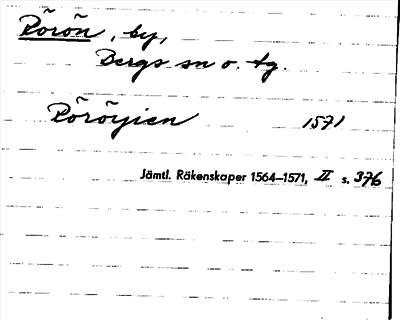 Rörön, by,
Bergs sn o. tg.
Röröyien 1571
Jämtl. Räkenskaper 1564–1571, II s. 376